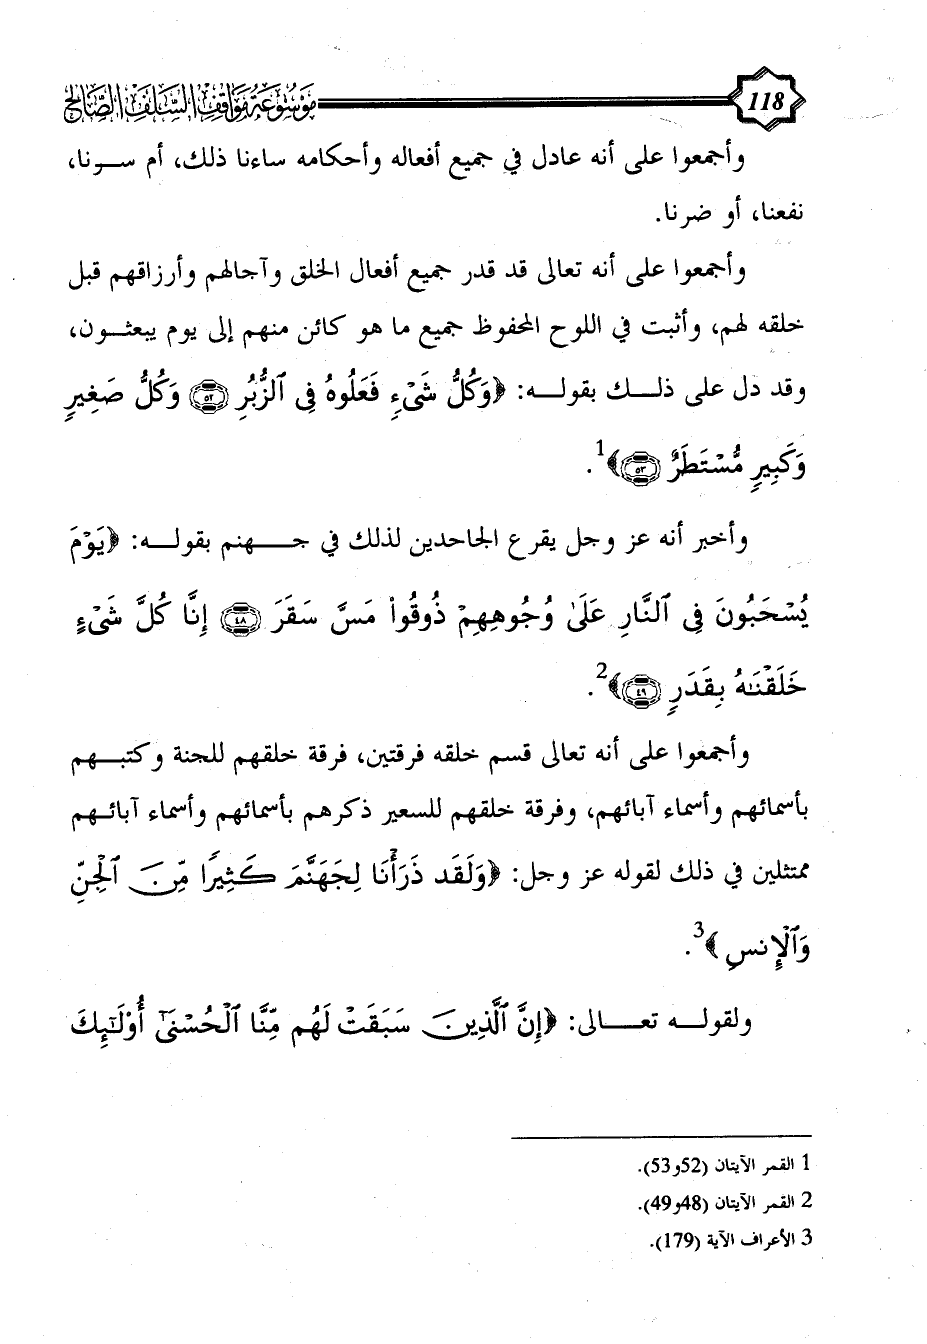 118 موسوعة مواقف السلف الصالح
وأجمعوا على أنه عادل في جميع أفعاله وأحكامه ساءنا ذلك، أم سرنا،
نفعنا، أو ضرنا.
وأجمعوا على أنه تعالى قد قدر جميع أفعال الخلق وآجالهم وأرزاقهم قبل
خلقه لهم، وأثبت في اللوح المحفوظ جميع ما هو كائن منهم إلى يوم يبعثون،
وقد دل على ذلك بقوله: ﴿وَكُلُّ شَىْءٍ فَعَلُوهُ فِى ٱلزُّبُرِ ٥٢ وَكُلُّ صَغِيرٍ
وَكَبِيرٍ مُّسْتَطَرٌ ٥٣﴾1.
وأخبر أنه عز وجل يقرع الجاحدين لذلك في جهنم بقوله: ﴿يَوْمَ
يُسْحَبُونَ فِى ٱلنَّارِ عَلَىٰ وُجُوهِهِمْ ذُوقُوا۟ مَسَّ سَقَرَ ٤٨ إِنَّا كُلَّ شَىْءٍ
خَلَقْنَٰهُ بِقَدَرٍ ٤٩﴾2.
وأجمعوا على أنه تعالى قسم خلقه فرقتين، فرقة خلقهم للجنة وكتبهم
بأسمائهم وأسماء آبائهم، وفرقة خلقهم للسعير ذكرهم بأسمائهم وأسماء آبائهم
ممتثلين في ذلك لقوله عز وجل: ﴿وَلَقَدْ ذَرَأْنَا لِجَهَنَّمَ كَثِيرًا مِّنَ ٱلْجِنِّ
وَٱلْإِنسِ﴾3.
ولقوله تعالى: ﴿إِنَّ ٱلَّذِينَ سَبَقَتْ لَهُم مِّنَّا ٱلْحُسْنَىٰٓ أُو۟لَٰٓئِكَ
1 القمر الآيتان (52و53).
2 القمر الآيتان (48و49).
3 الأعراف الآية (179).